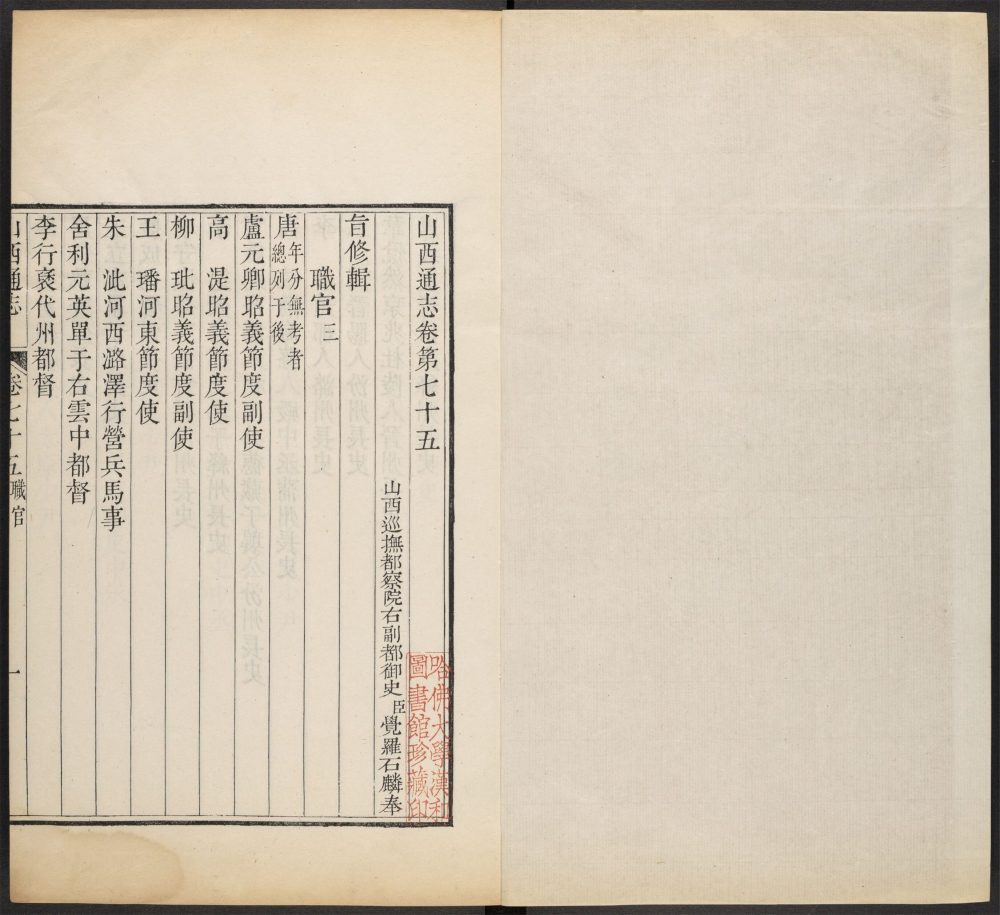 山西通志卷第七十五
山西巡撫都察院右副都御史臣覺羅石麟奉
旨修輯
職官三
唐年分無考者總列于後
盧元卿昭義節度副使
高湜昭義節度使
柳玭昭義節度副使
王璠河東節度使
朱泚河西潞澤行營兵馬事
舍利元英單于右雲中都督
李行褒代州都督
山西通志 卷七十五職官 一
哈佛大學漢和
圖書館珍藏印